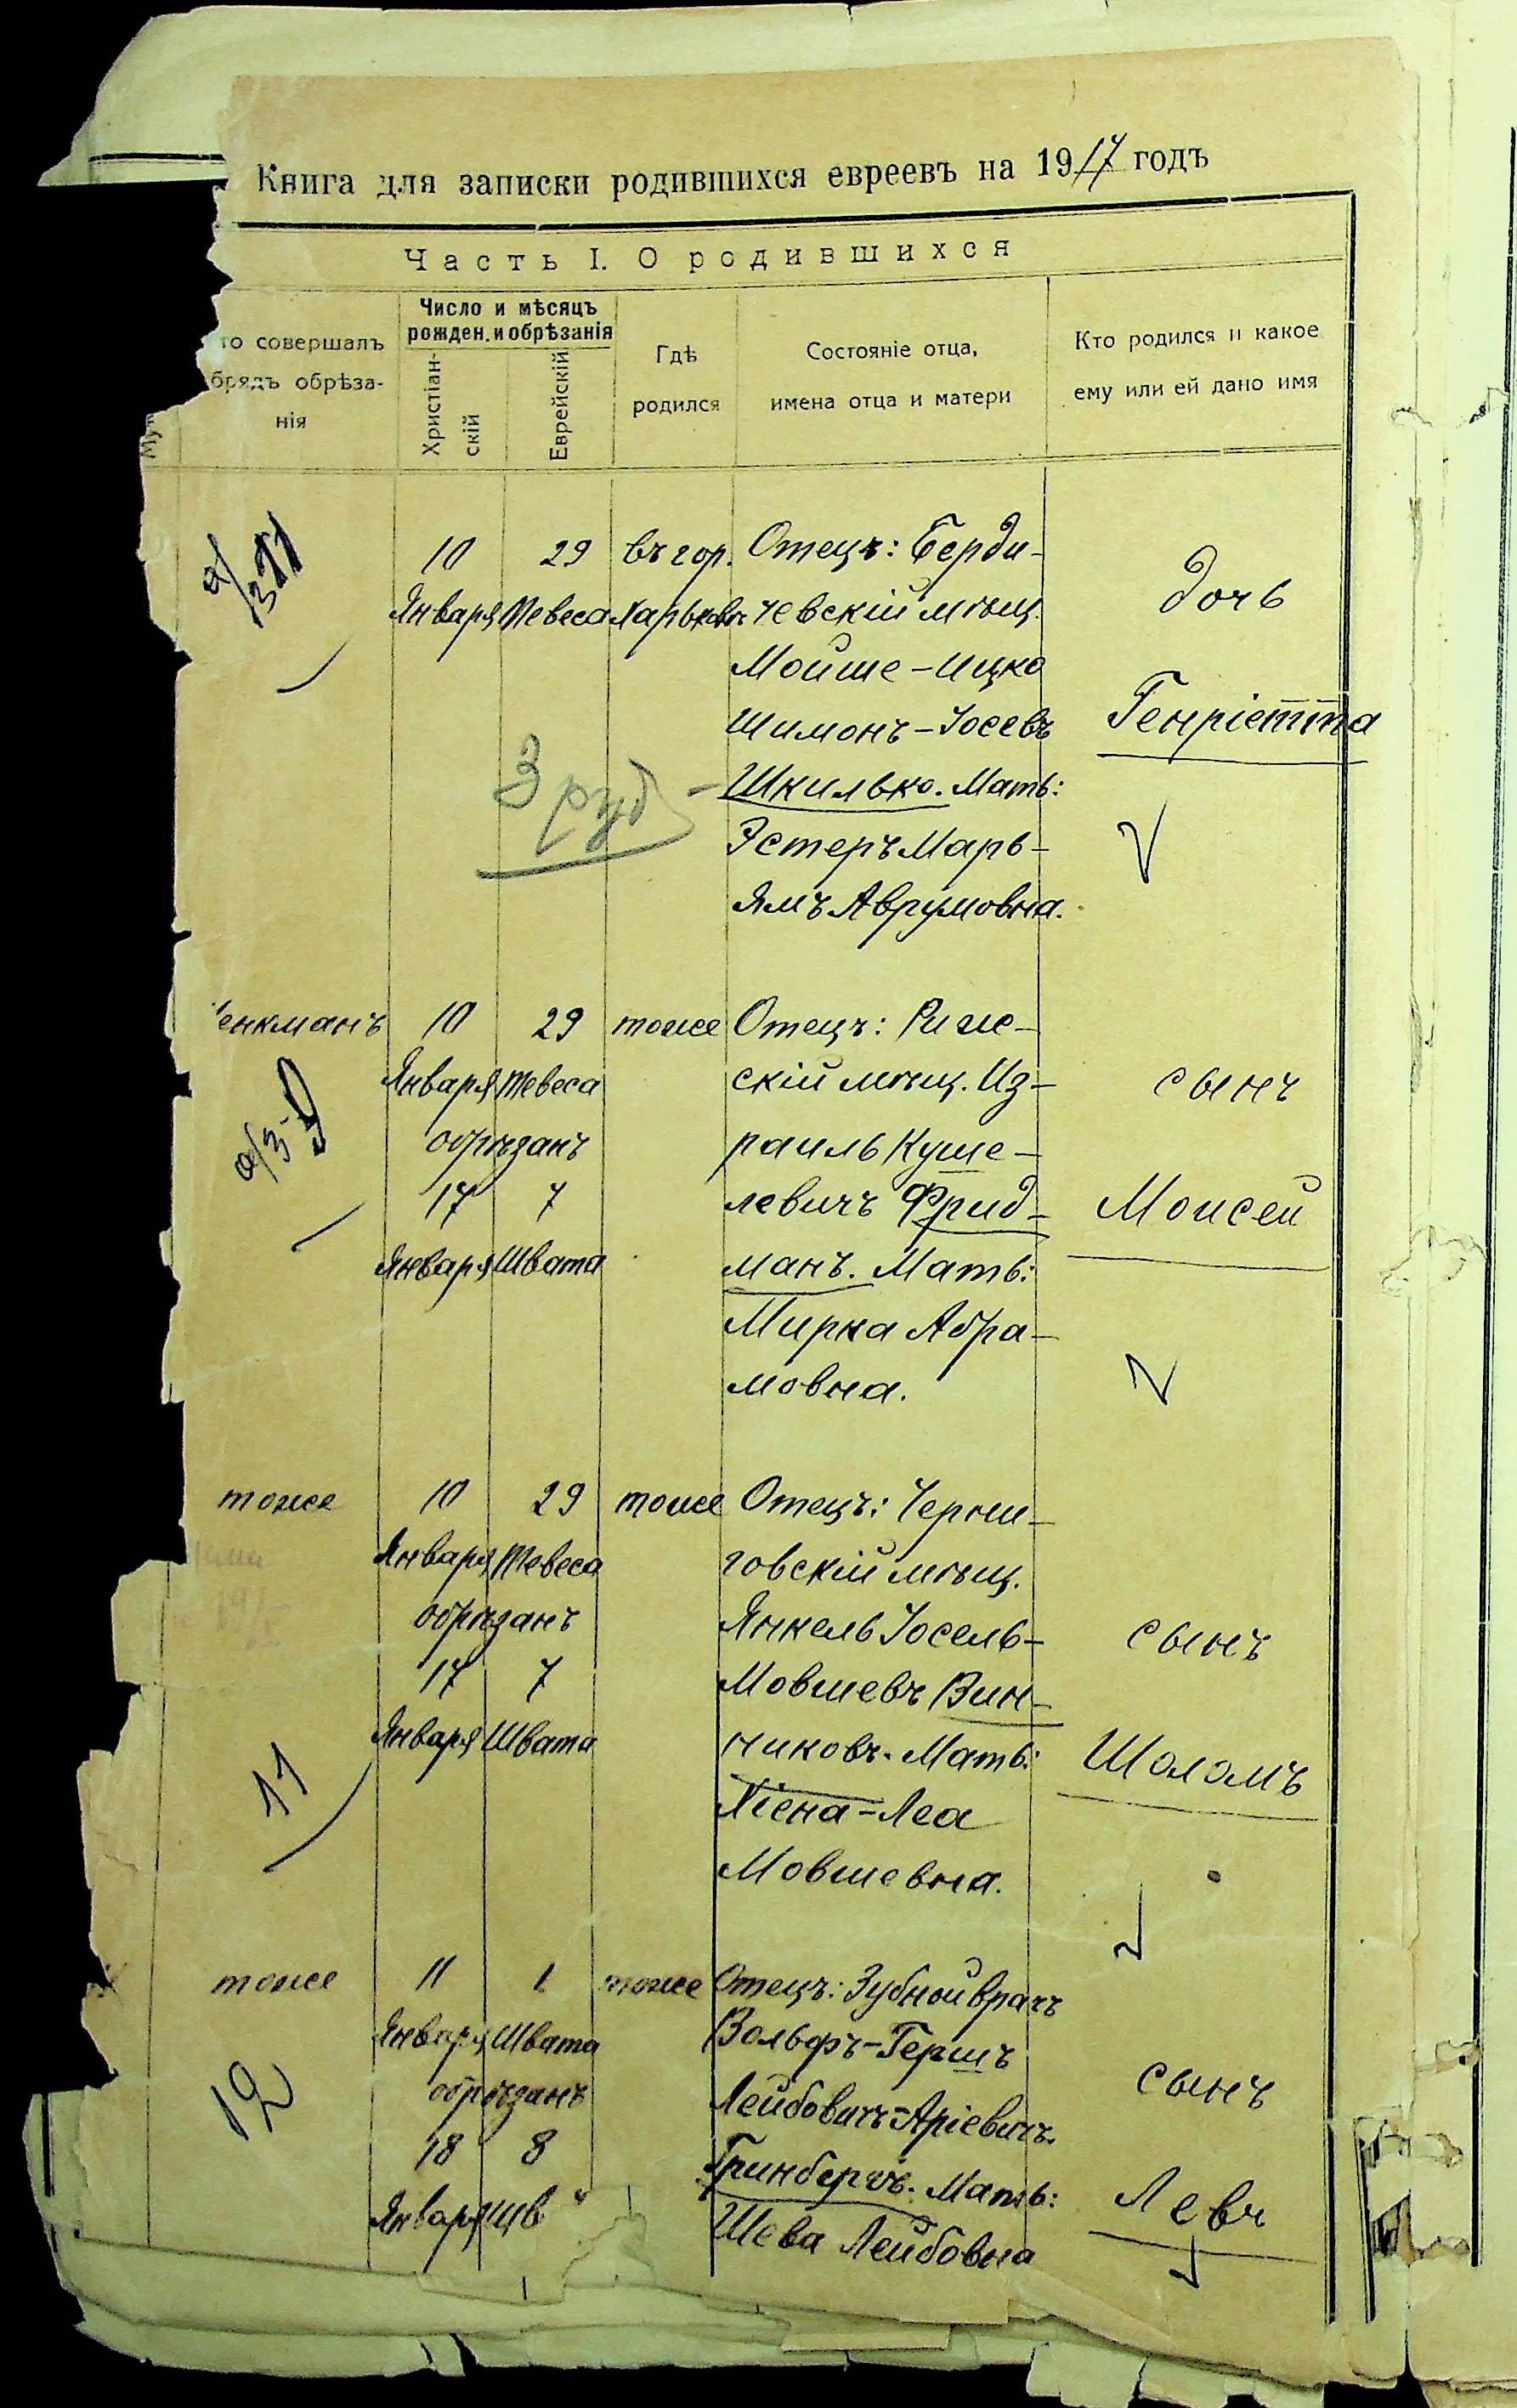 Книга для записки родившихся евреевъ на 1917 годъ
Часть I. О родившихся
то совершалъ
брядъ обрѣза-
нія
Число и мѣсяцъ
рожден. и обрѣзанія
Христіан-
скій
Еврейскій
Гдѣ
родился
Состояніе отца,
имена отца и матери
Кто родился и какое
ему или ей дано имя
10
Января
29
Тевеса
въ гор.
Харьковѣ
Отецъ: Берди-
чевскій мѣщ.
Мойше-Ицко
Шимонъ-Іосевъ
Шкилько. Мать:
Эстеръ Марь-
ямъ Аврумовна.
дочь
Генріетта
3 руб
енкманъ
10
Января
29
Тевеса
обрѣзанъ
17
Января
7
Швата
тоже
Отецъ: Риж-
скій мѣщ. Из-
раиль Куше-
левичъ Фрид-
манъ. Мать:
Мирка Абра-
мовна.
сынъ
Моисей
тоже
10
Января
29
Тевеса
обрѣзанъ
17
Января
7
Швата
11
тоже
Отецъ: Черни-
говскій мѣщ.
Янкель Іосель-
Мовшевъ Вин-
никовъ. Мать:
Хіена-Леа
Мовшевна.
сынъ
Шоломъ
тоже
11
Января
1
Швата
обрѣзанъ
18
Января
8
Шв
12
тоже
Отецъ: Зубной врачъ
Вольфъ-Гершъ
Лейбовичъ-Аріевичъ
Гринбергъ. Мать:
Шева Лейбовна
сынъ
Левъ